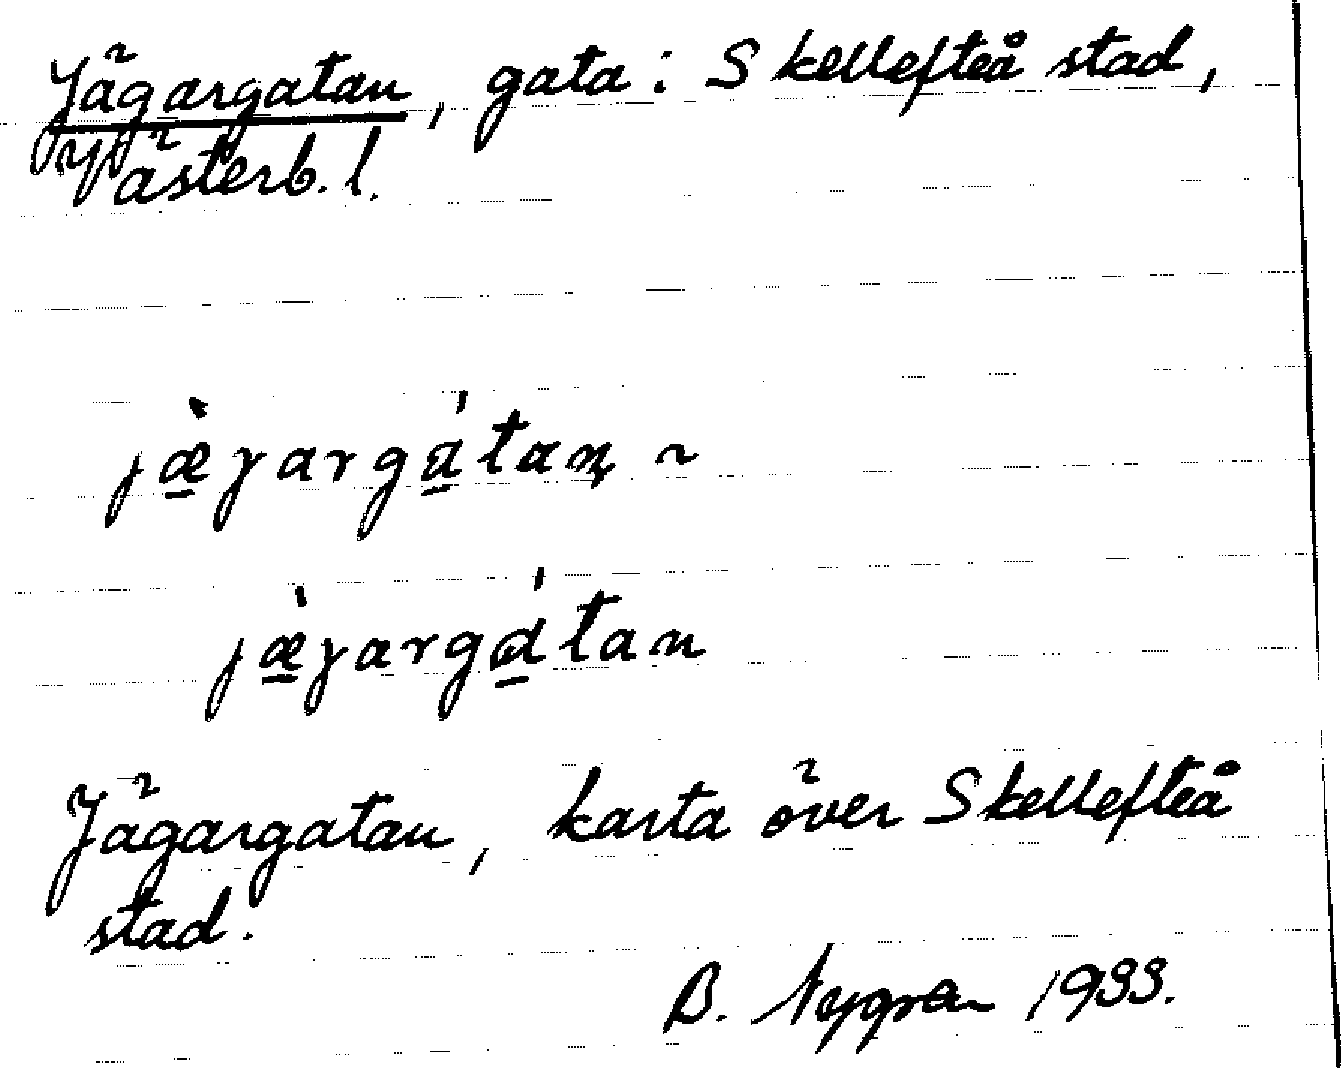 Jägargatan, gata i Skellefteå stad,
Västerb. l.
jæ̠̀ɣargá̠tan̥ ~
jæ̠̀ɣargá̠tan
Jägargatan, karta över Skellefteå
stad.
B. Nygren 1933.